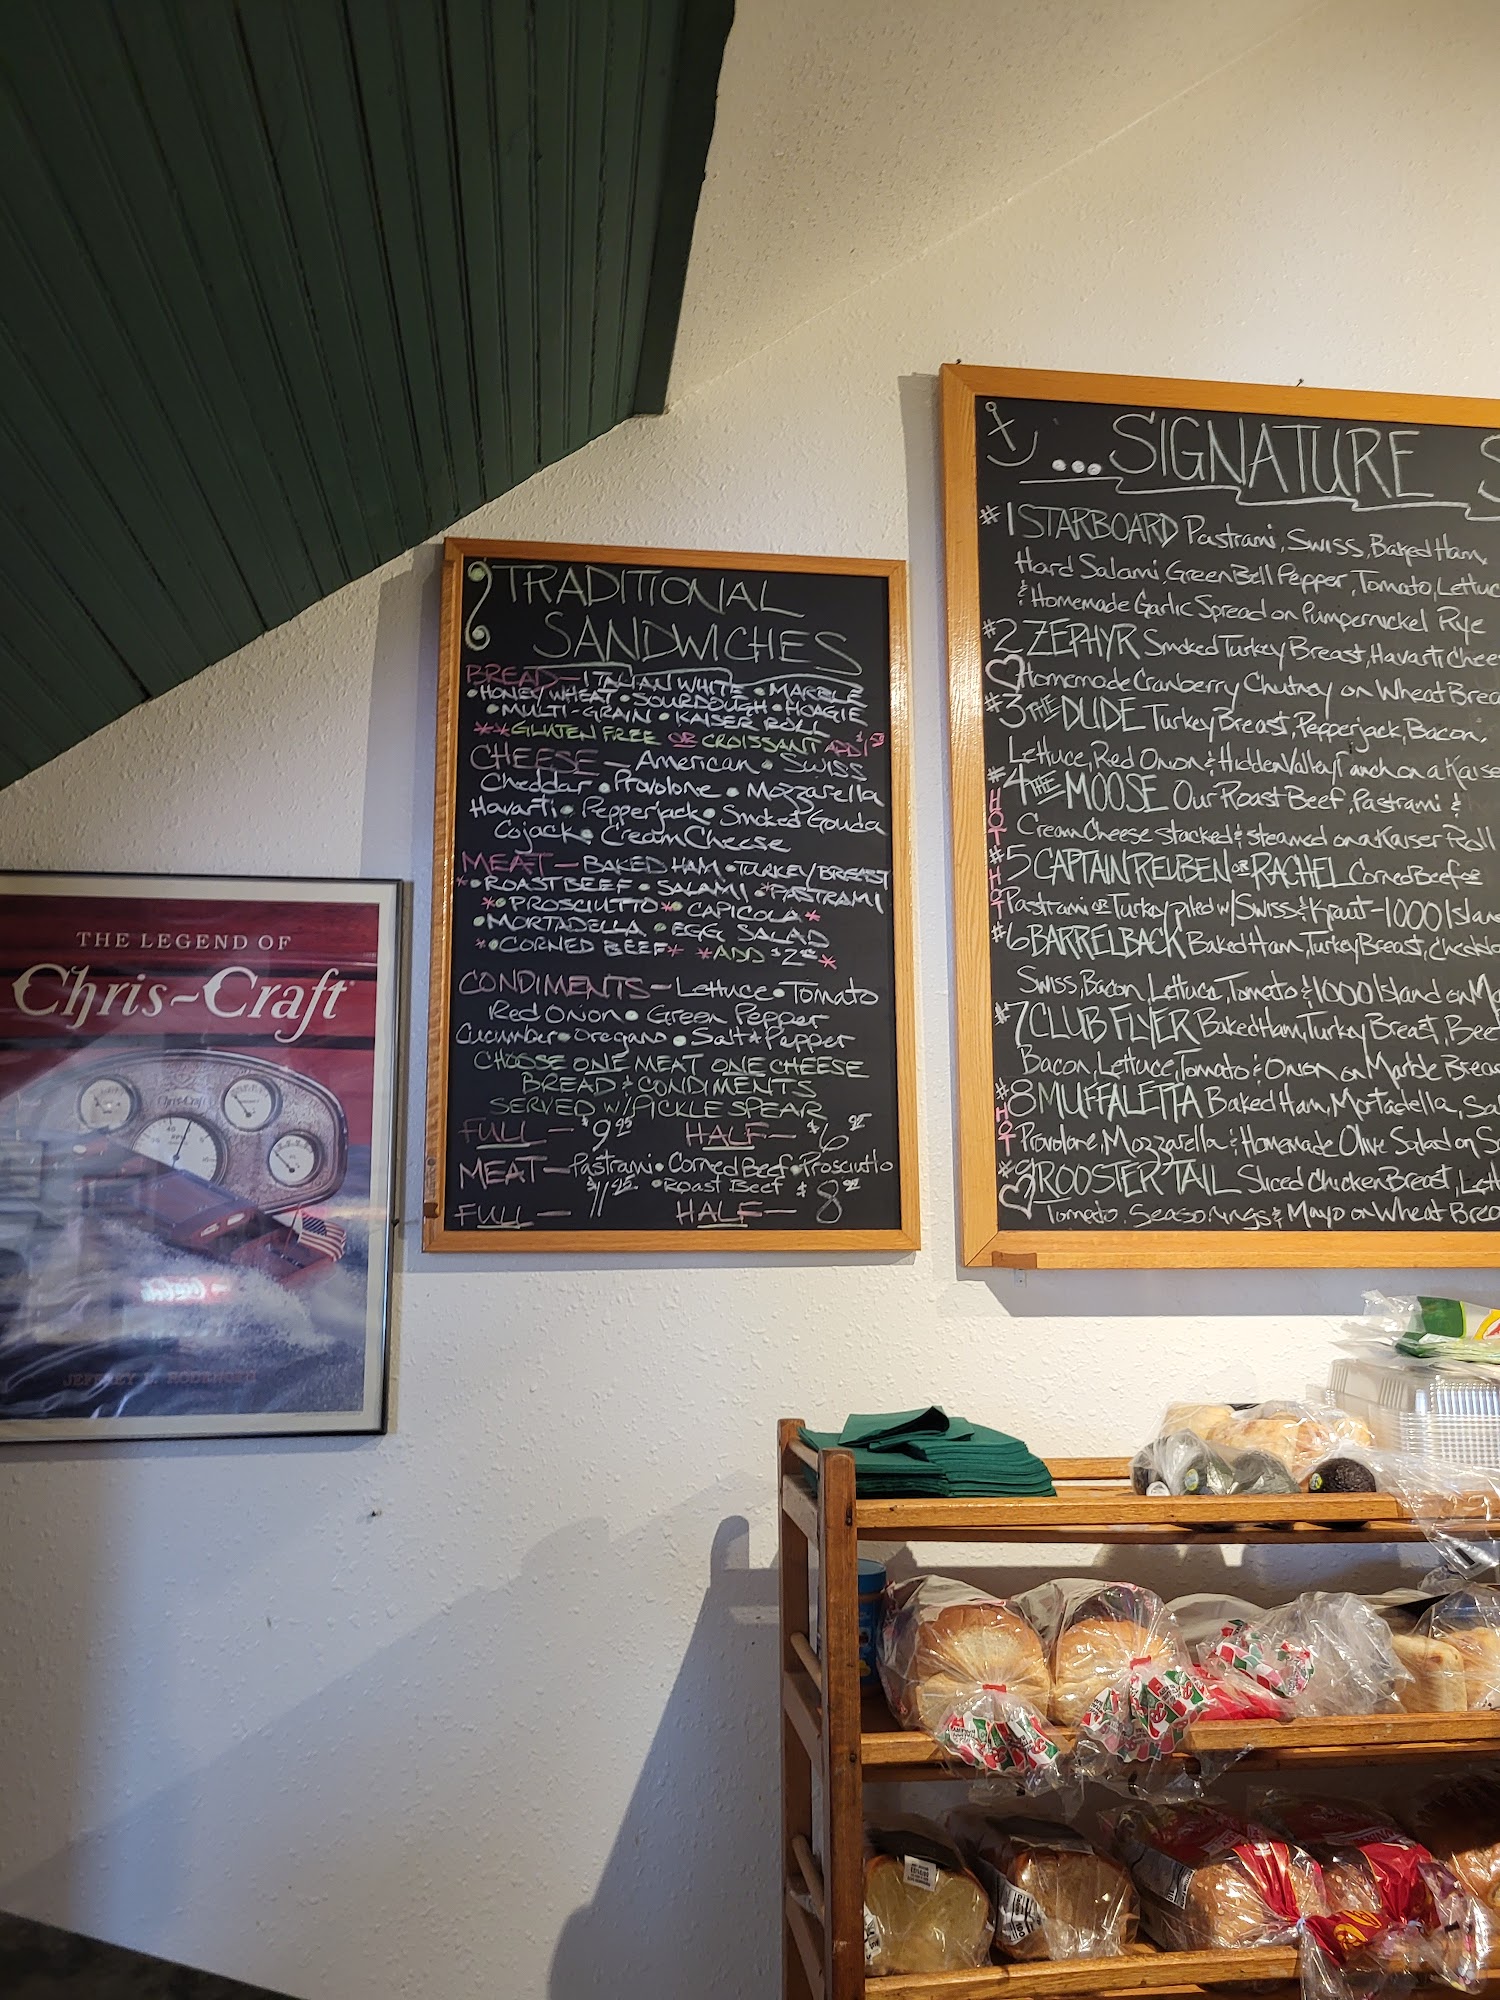 THE LEGEND OF
Chris-Craft
Chris-Craft
TRADITIONAL
SANDWICHES
BREAD — ITALIAN WHITE • MARBLE
• HONEY WHEAT • SOURDOUGH • HOAGIE
• MULTI-GRAIN • KAISER ROLL
**GLUTEN FREE OR CROISSANT ADD $1.50
CHEESE — American • Swiss
Cheddar • Provolone • Mozzarella
Havarti • Pepperjack • Smoked Gouda
Cojack • Cream Cheese
MEAT — BAKED HAM • TURKEY BREAST
*• ROAST BEEF • SALAMI • *PASTRAMI
*• PROSCIUTTO *• CAPICOLA *
• MORTADELLA • EGG SALAD
*• CORNED BEEF* *ADD $2.00*
CONDIMENTS — Lettuce • Tomato
Red Onion • Green Pepper
Cucumber • Oregano • Salt & Pepper
CHOOSE ONE MEAT ONE CHEESE
BREAD & CONDIMENTS
SERVED W/PICKLE SPEAR
FULL — $9.95 HALF — $6.95
MEAT — Pastrami • Corned Beef • Prosciutto
• Roast Beef
FULL — $11.95 HALF — $8.90
... SIGNATURE S
#1 STARBOARD Pastrami, Swiss, Baked Ham,
Hard Salami, Green Bell Pepper, Tomato, Lettuc
& Homemade Garlic Spread on Pumpernickel Rye
#2 ZEPHYR Smoked Turkey Breast, Havarti Chees
Homemade Cranberry Chutney on Wheat Brea
#3 THE DUDE Turkey Breast, Pepperjack, Bacon,
Lettuce, Red Onion & Hidden Valley Ranch on a Kaise
#4 THE MOOSE Our Roast Beef, Pastrami &
HOT Cream Cheese stacked & steamed on a Kaiser Roll
#5 CAPTAIN REUBEN OR RACHEL Corned Beef or
HOT Pastrami or Turkey piled w/ Swiss & Kraut - 1000 Island
#6 BARRELBACK Baked Ham, Turkey Breast, Chedda
Swiss, Bacon, Lettuce, Tomato & 1000 Island on Ma
#7 CLUB FLYER Baked Ham, Turkey Breast, Beef
Bacon, Lettuce, Tomato & Onion on Marble Bread
#8 MUFFALETTA Baked Ham, Mortadella, Sal
HOT Provolone, Mozzarella & Homemade Olive Salad on So
#9 ROOSTER TAIL Sliced Chicken Breast, Lett
Tomato, Seasonings & Mayo on Wheat Brea